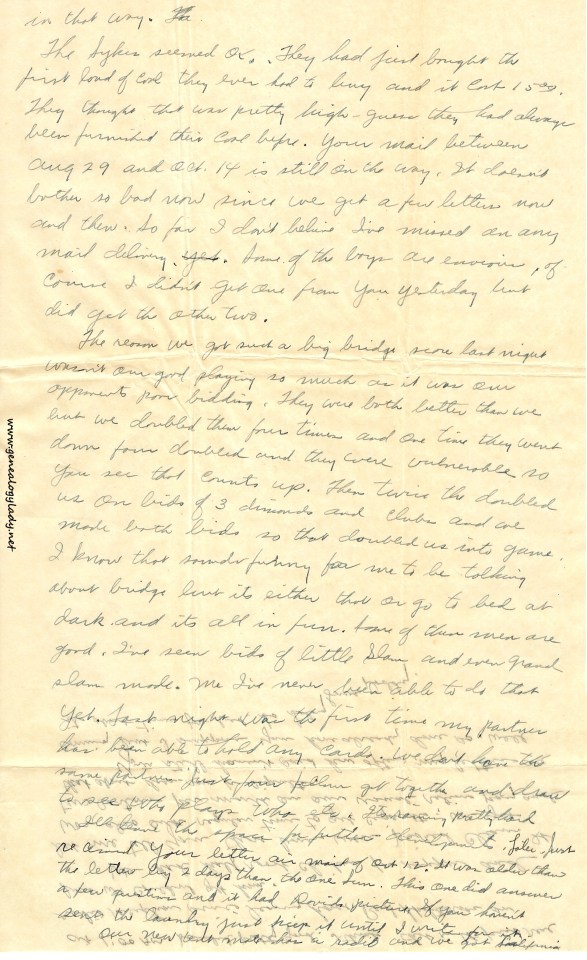 in that way. The
The Sykes seemed OK. They had just bought the
first load of coal they ever had to buy and it cost 15.00.
They thought that was pretty high - guess they had always
been furnished their coal before. Your mail between
Aug 29 and Oct. 14 is still on the way. It doesn't
bother so bad now since we get a few letters now
and then. So far I don't believe I've missed on any
mail delivery yet. Some of the boys are envious, of
course I didn't get one from you yesterday but
did get the other two.
The reason we got such a big bridge score last night
wasn't our good playing so much as it was our
opponents poor bidding. They were both better than we
but we doubled them four times and one time they went
down four doubled and they were vulnerable so
you see that counts up. Then twice they doubled
us on bids of 3 dimonds and clubs and we
made both bids so that doubled us into game.
I know that sounds funny for me to be talking
about bridge but its either that or go to bed at
dark and its all in fun. Some of them men are
good. I've seen bids of little slam and even grand
slam made. Me I've never been able to do that
yet. Last night was the first time my partner
has been able to hold any cards. We don't have the
same partner just four fellows get together and draw
to see who plays who etc. Its raining pretty hard
Ill leave the space for further developments. Later. Just
received your letter air mail of Oct 12. It was older than
the letter by 2 days than the one Sun. This one did answer
a few questions and it had Davids picture. If you havent
sent the laundry just keep it until I write for it.
Our new tent mate has a radio and we get California
www.genealogylady.net